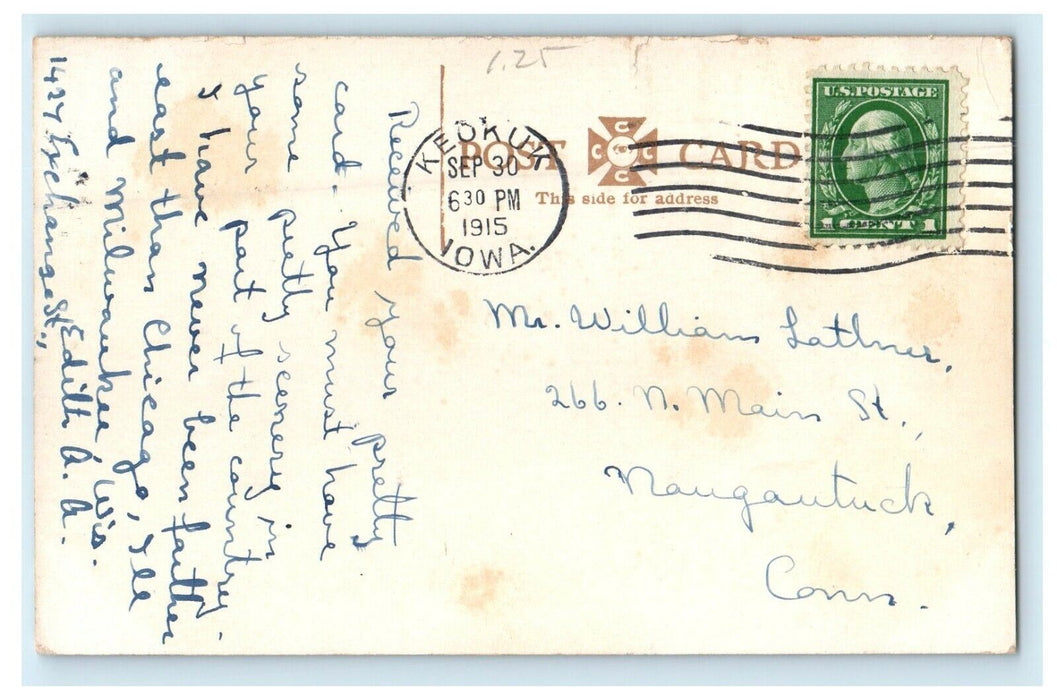 1.25
POST CARD
C C C C
This side for address
KEOKUK
SEP 30
6 30 PM
1915
IOWA.
U.S. POSTAGE
1 CENT 1
Received your pretty
card. You must have
some pretty scenery in
your part of the country.
I have never been farther
east than Chicago, Ill
and Milwaukee, Wis.
Edith A. A.
1427 Exchange St.,
Mr. William Lathner,
266. N. Main St.,
Naugautuck,
Conn.